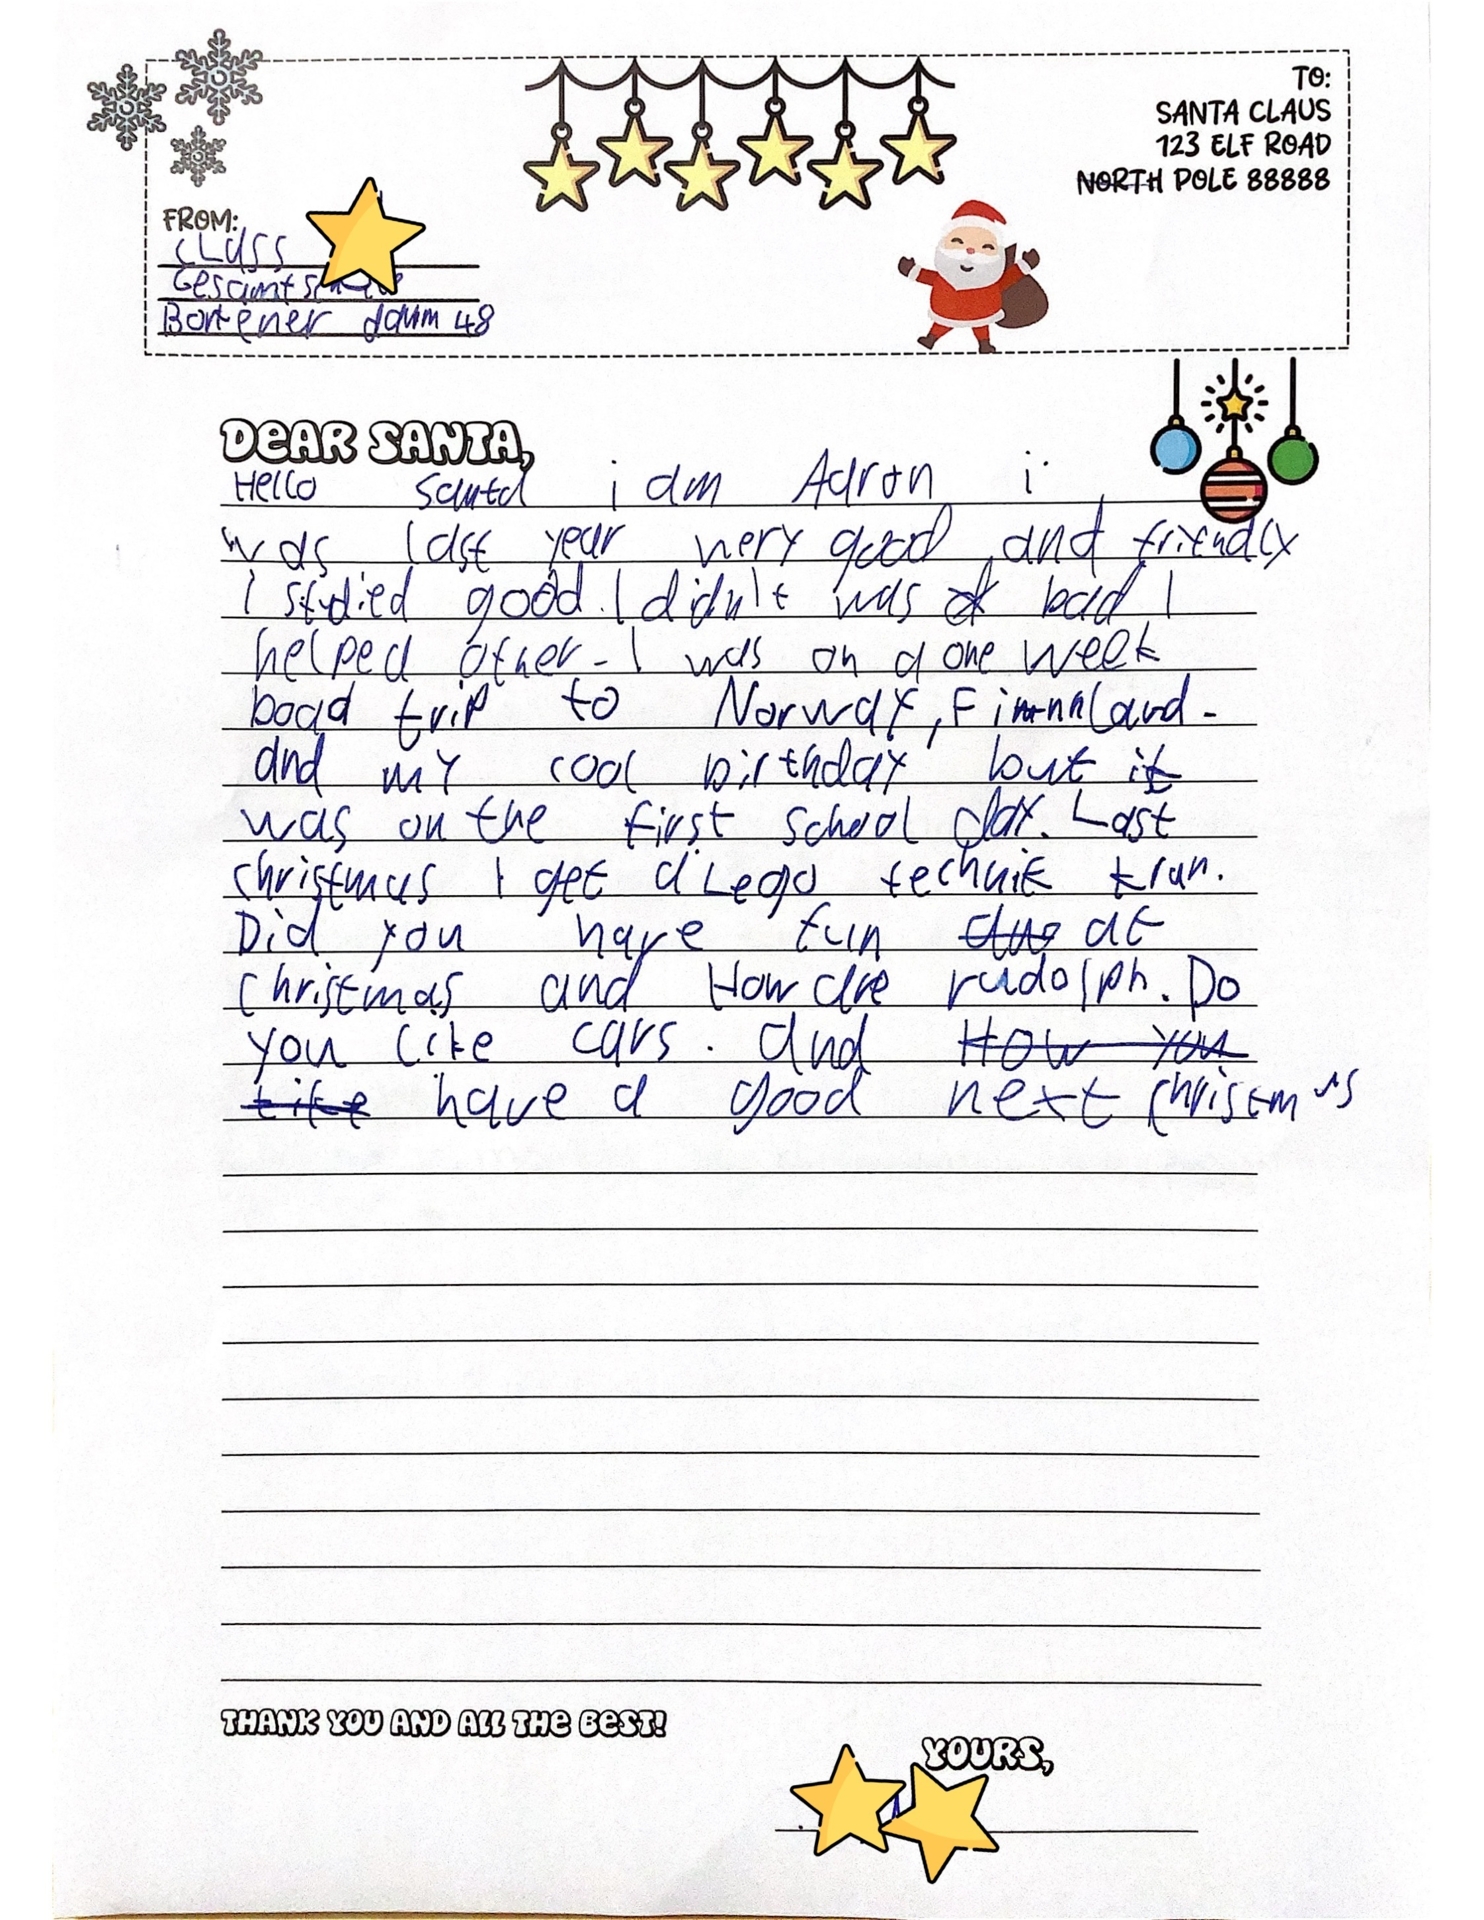 TO:
SANTA CLAUS
123 ELF ROAD
NORTH POLE 88888
FROM:
CLass
Gesamtsch
Borkener damm 48
DEAR SANTA,
Hello Santa i am Aaron i
was last year very good and friendly
I studied good. I didn't was bad I
helped other. I was on a one week
boad trip to Norway, Finnland.
and my cool birthday but it
was on the first school day. Last
christmas I get a Lego technik tran.
Did you have fun at
christmas and How are rudolph. Do
you like cars. and How you
like have a good next christmas
THANK YOU AND ALL THE BEST!
YOURS,